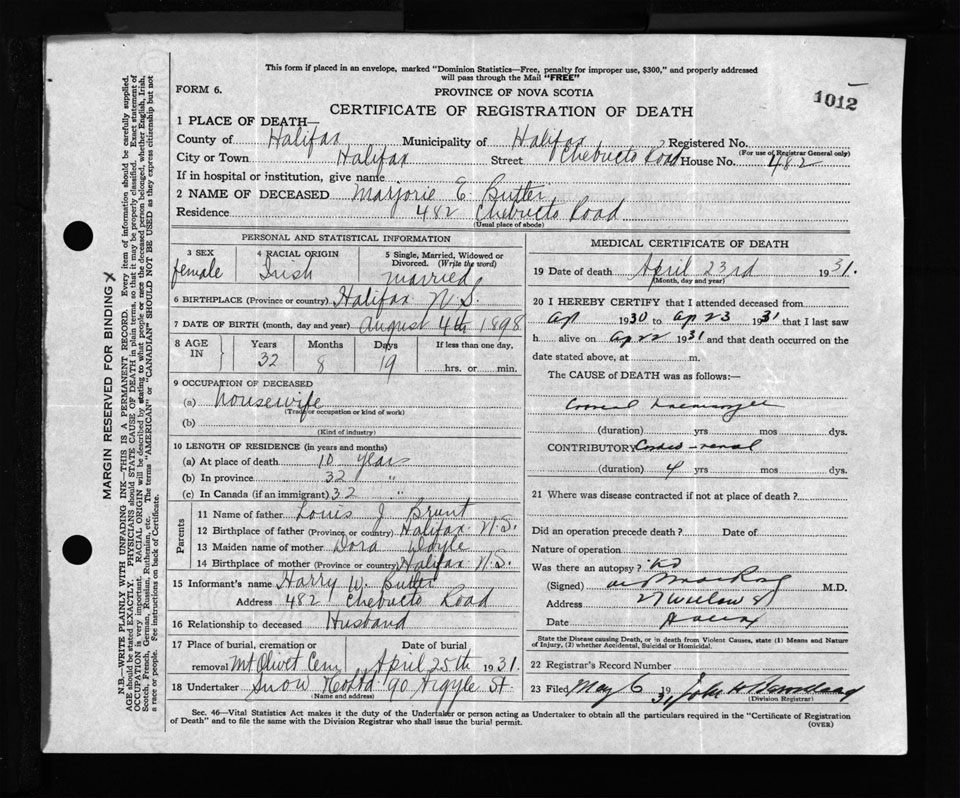 This form if placed in an envelope, marked "Dominion Statistics—Free, penalty for improper use, $300," and properly addressed
will pass through the Mail "FREE"
FORM 6.
PROVINCE OF NOVA SCOTIA
1012
CERTIFICATE OF REGISTRATION OF DEATH
1 PLACE OF DEATH—
County of Halifax Municipality of Halifax Registered No.
(For use of Registrar General only)
City or Town Halifax Street Chebucto Road House No. 482
If in hospital or institution, give name
2 NAME OF DECEASED Marjorie E. Butler
Residence 482 Chebucto Road
(Usual place of abode)
PERSONAL AND STATISTICAL INFORMATION
3 SEX
female
4 RACIAL ORIGIN
Irish
5 Single, Married, Widowed or
Divorced. (Write the word)
married
6 BIRTHPLACE (Province or country) Halifax N.S.
7 DATE OF BIRTH (month, day and year) August 4th 1898
8 AGE IN Years Months Days If less than one day,
32 8 19 hrs. or min.
9 OCCUPATION OF DECEASED
(a) housewife
(Trade or occupation or kind of work)
(b)
(Kind of industry)
10 LENGTH OF RESIDENCE (in years and months)
(a) At place of death 10 years
(b) In province 32 "
(c) In Canada (if an immigrant) 32 "
Parents
11 Name of father Louis J Brunt
12 Birthplace of father (Province or country) Halifax N.S.
13 Maiden name of mother Dora Doyle
14 Birthplace of mother (Province or country) Halifax N.S.
15 Informant's name Harry W. Butler
Address 482 Chebucto Road
16 Relationship to deceased Husband
17 Place of burial, cremation or Date of burial
removal Mt Olivet Cem April 25th 1931.
18 Undertaker Snow & Co Ltd 90 Argyle St.
(Name and address)
MEDICAL CERTIFICATE OF DEATH
19 Date of death April 23rd 1931.
(Month, day and year)
20 I HEREBY CERTIFY that I attended deceased from
Ap 1930 to Ap 23 1931 that I last saw
h alive on Ap 22 1931 and that death occurred on the
date stated above, at m.
The CAUSE of DEATH was as follows:—
(duration) yrs mos dys.
CONTRIBUTORY Cardio-renal
(duration) 4 yrs mos dys.
21 Where was disease contracted if not at place of death?
Did an operation precede death? Date of
Nature of operation
Was there an autopsy? no
(Signed) M.D.
Address Willow St
Date Halifax
State the Disease causing Death, or in death from Violent Causes, state (1) Means and Nature
of Injury, (2) whether Accidental, Suicidal or Homicidal.
22 Registrar's Record Number
23 Filed May 6 1931 John H
(Division Registrar)
Sec. 46—Vital Statistics Act makes it the duty of the Undertaker or person acting as Undertaker to obtain all the particulars required in the "Certificate of Registration
of Death" and to file the same with the Division Registrar who shall issue the burial permit.
(OVER)
MARGIN RESERVED FOR BINDING
N.B.—WRITE PLAINLY WITH UNFADING INK—THIS IS A PERMANENT RECORD. Every item of information should be carefully supplied.
AGE should be stated EXACTLY. PHYSICIANS should STATE CAUSE OF DEATH in plain terms, so that it may be properly classified. Exact statement of
OCCUPATION is very important. RACIAL ORIGIN will be described by stating to what people or race the deceased person belonged, whether English, Irish,
Scotch, French, German, Russian, Ruthenian, etc. The terms "AMERICAN" or "CANADIAN" SHOULD NOT BE USED as they express citizenship but not
a race or people. See instructions on back of Certificate.